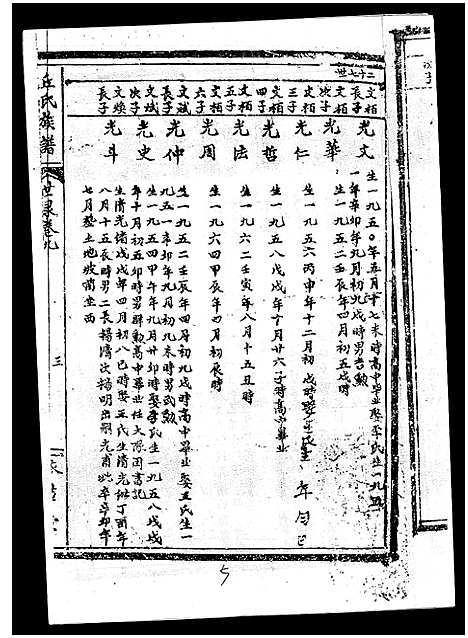 二十七世
文柏長子
光文
生一九五〇年五月十七未時高中畢業娶李氏生一九五
一年辛卯年九月初九戌時男吉勲
文柏次子
光華
生一九五二壬辰年四月初五戌時
文柏三子
光仁
生一九五六丙申年十二月初 戌時娶王氏生 年 月 日
文柏四子
光哲
生一九五八戊戌年十月廿六子時高中畢業
文柏五子
光法
生一九六二壬寅年八月十五丑時
文斌六子
光周
生一九六四甲辰年四月初 辰時
文斌長子
光仲
生一九五二壬辰年四月初九戌時高中畢業娶王氏生一
九五一辛卯年九月初九未時男武勲
文斌次子
光史
生一九五四甲午年九月廿卯時娶李氏生一九五八戊戌
年十月初五卯時男 勲高中畢業任大隊團書記
文煥長子
光斗
生清光緒戊戌年四月初八巳時娶王氏生清光緒丁酉年
八月十五辰時男二長楊濟次楊明出嗣光甫 卒辛卯年
七月塟土地坡 坐西
丘氏族譜
世录卷九
三
5